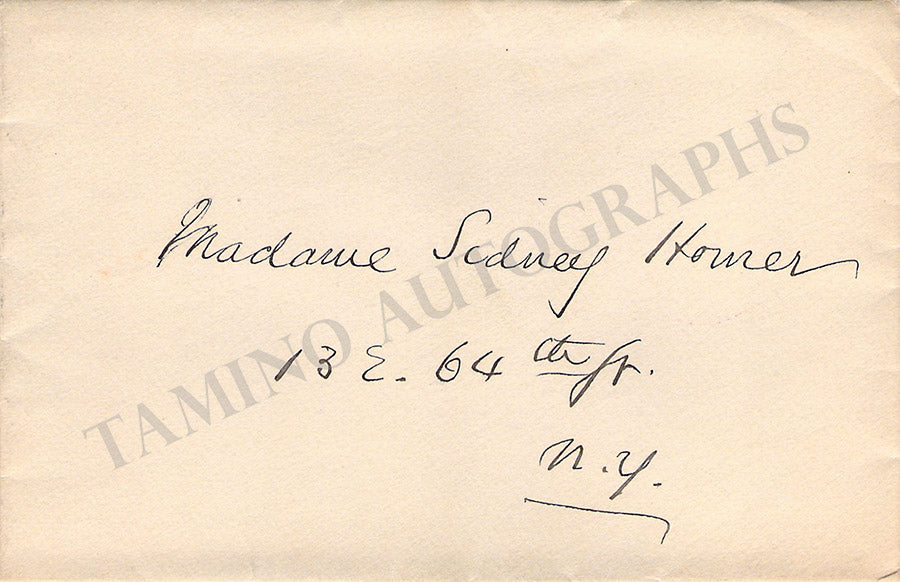 Madame Sidney Homer
13 E. 64th St.
N.Y.
TAMINO AUTOGRAPHS